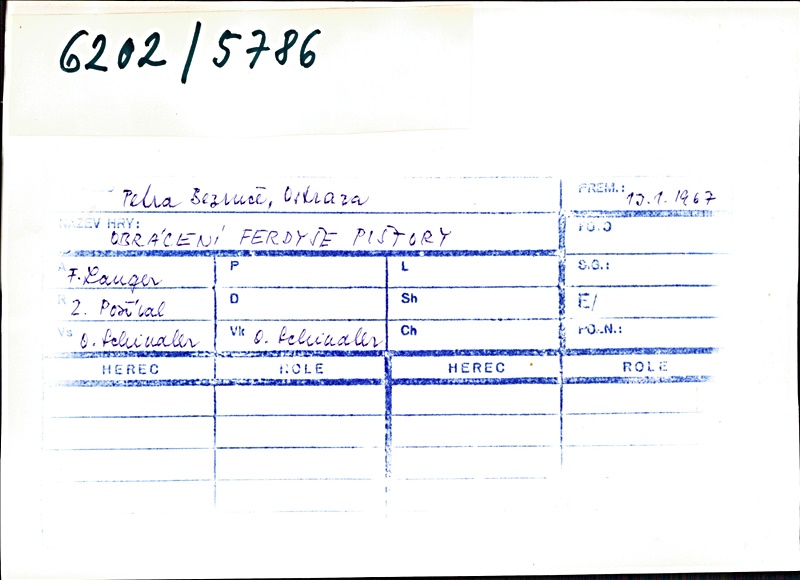 6202/5786
Petra Bezruče, Ostrava
PREM.: 13.1.1967
NÁZEV HRY: OBRÁCENÍ FERDYŠE PIŠTORY
A F. Langer P L S.G.:
R Z. Pošíval D Sh E/
Vs O. Schindler Vk O. Schindler Ch PO.N.:
HEREC ROLE HEREC ROLE